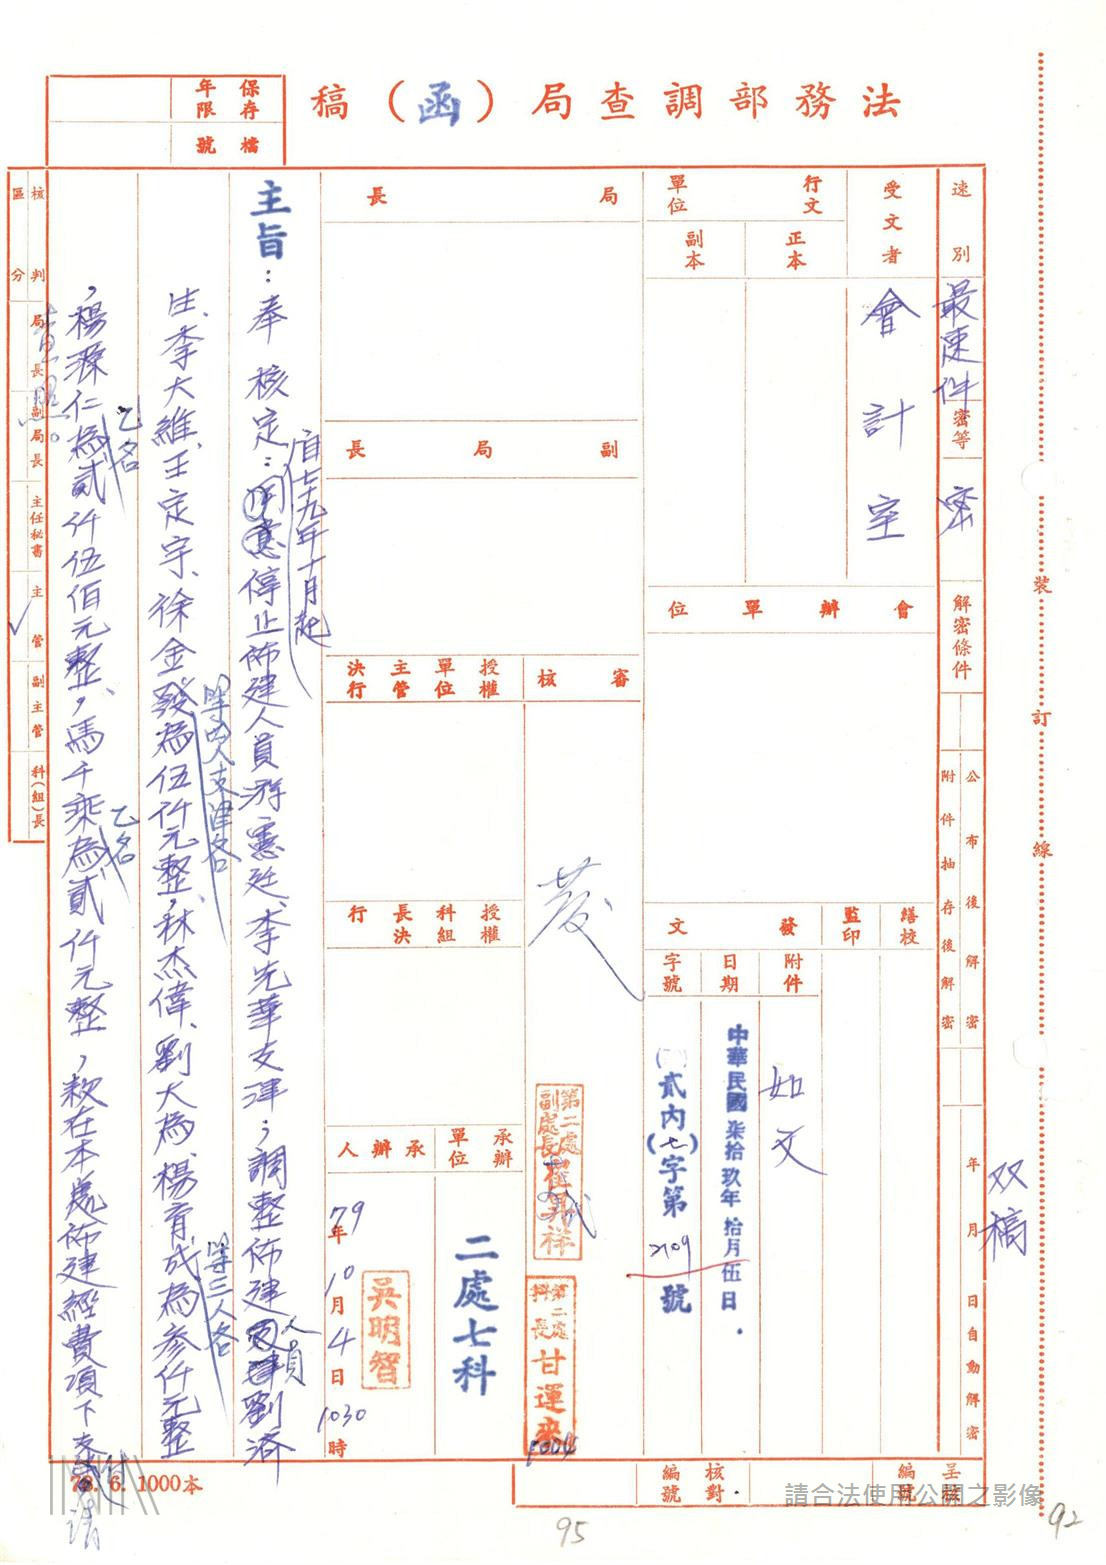 法務部調查局（函）稿
保存年限
檔號
速別
最速件
密等
密
解密條件
公布後解密
附件抽存後解密
年月日自動解密
双稿
受文者
會計室
行文單位
正本
副本
會辦單位
繕校
監印
發文
附件
如文
日期
中華民國柒拾玖年拾月伍日
字號
貳內(七)字第2109號
局長
副局長
審核
授權單位主管決行
授權科組長決行
第二處副處長崔昇祥
第二處科長甘運來
1004
承辦單位
二處七科
承辦人
吳明智
79年10月4日1030時
主旨：奉 核定：自七十九年十月起停止佈建人員游憲廷、李先華支津；調整佈建人員劉濟
生、李大維、王定宇、徐金發等四人支津各為伍仟元整，林杰偉、劉大為、楊育成等三人各為參仟元整
，楊源仁乙名為貳仟伍佰元整，馬千乘乙名為貳仟元整，款在本處佈建經費項下支付
請
查照。
核判區分
局長
副局長
主任秘書
主管
副主管
科(組)長
78.6.1000本
核對編號
呈核編號
裝
訂
線
請合法使用公開之影像
95
92